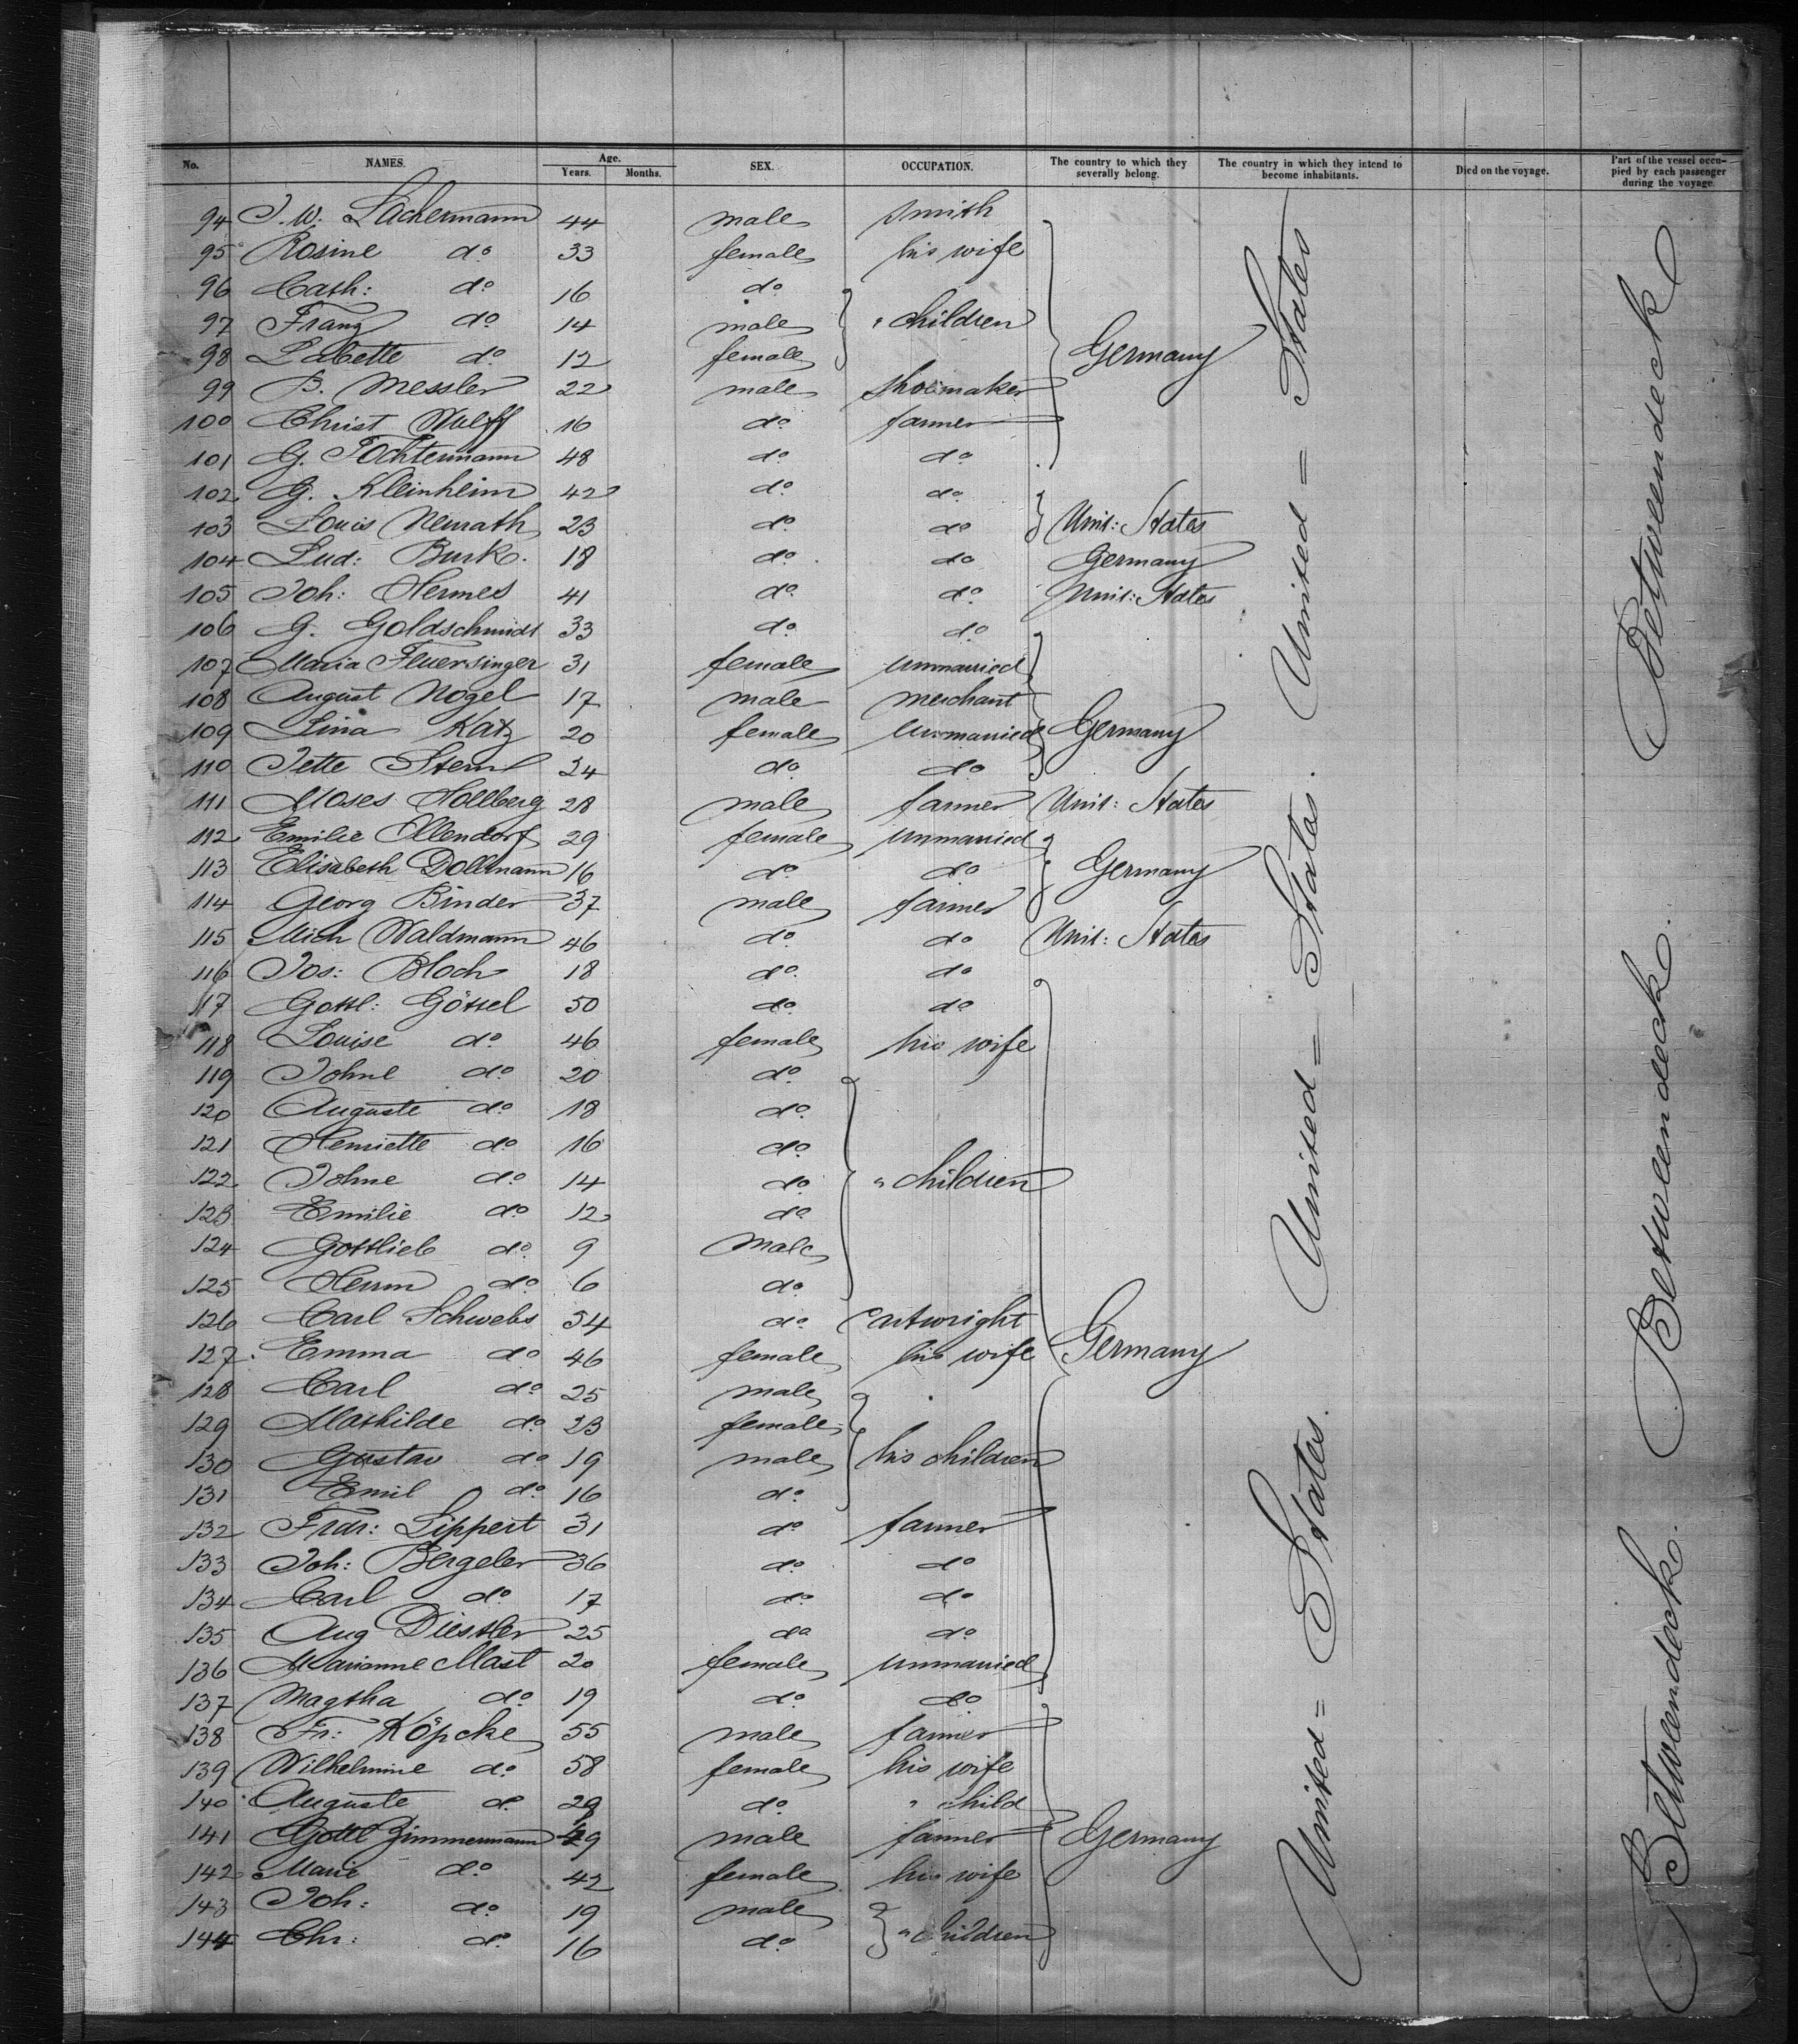 No. NAMES. Age. Years. Months. SEX. OCCUPATION. The country to which they severally belong. The country in which they intend to become inhabitants. Died on the voyage. Part of the vessel occupied by each passenger during the voyage.
94 J. W. Lachermann 44 male smith
95 Rosine do 33 female his wife
96 Cath: do 16 do
97 Franz do 14 male " children
98 Babette do 12 female Germany
99 B. Messler 22 male shoemaker
100 Christ Wulff 16 do farmer
101 G. Tochtermann 48 do do
102 G. Kleinheim 42 do do
103 Louis Neurath 23 do do Unit: States
104 Lud: Burk 18 do do Germany
105 Joh: Hermes 41 do do Unit: States
106 G. Goldschmidt 33 do do
107 Maria Feuersinger 31 female unmarried
108 August Nogel 17 male merchant
109 Lina Katz 20 female unmarried Germany
110 Jette Stern 24 do do
111 Moses Hollberg 28 male farmer Unit: States
112 Emilie Ollendorf 29 female unmarried
113 Elisabeth Dollmann 16 do do Germany
114 Georg Binder 37 male farmer
115 Mich Waldmann 46 do do Unit: States
116 Jos: Bloch 18 do do
117 Gottl: Gössel 50 do do
118 Louise do 46 female his wife
119 Johne do 20 do
120 Auguste do 18 do
121 Henriette do 16 do
122 Johne do 14 do " children
123 Emilie do 12 do
124 Gottlieb do 9 male
125 Herm do 6 do
126 Carl Schwebs 54 do cartwright
127 Emma do 46 female his wife Germany
128 Carl do 25 male
129 Mathilde do 23 female
130 Gustav do 19 male his children
131 Emil do 16 do
132 Frdr: Lippert 31 do farmer
133 Joh: Bergeler 36 do do
134 Carl do 17 do do
135 Aug Diestler 25 do do
136 Marianne Mast 20 female unmarried
137 Magtha do 19 do do
138 Fr: Köpcke 55 male farmer
139 Wilhelmine do 58 female his wife
140 Auguste do 29 do " child
141 Gottl Zimmermann 49 male farmer Germany
142 Marie do 42 female his wife
143 Joh: do 19 male
144 Chr: do 16 do " children
United = States
United = States.
United = States.
Betweendeck
Betweendeck.
Betweendeck.